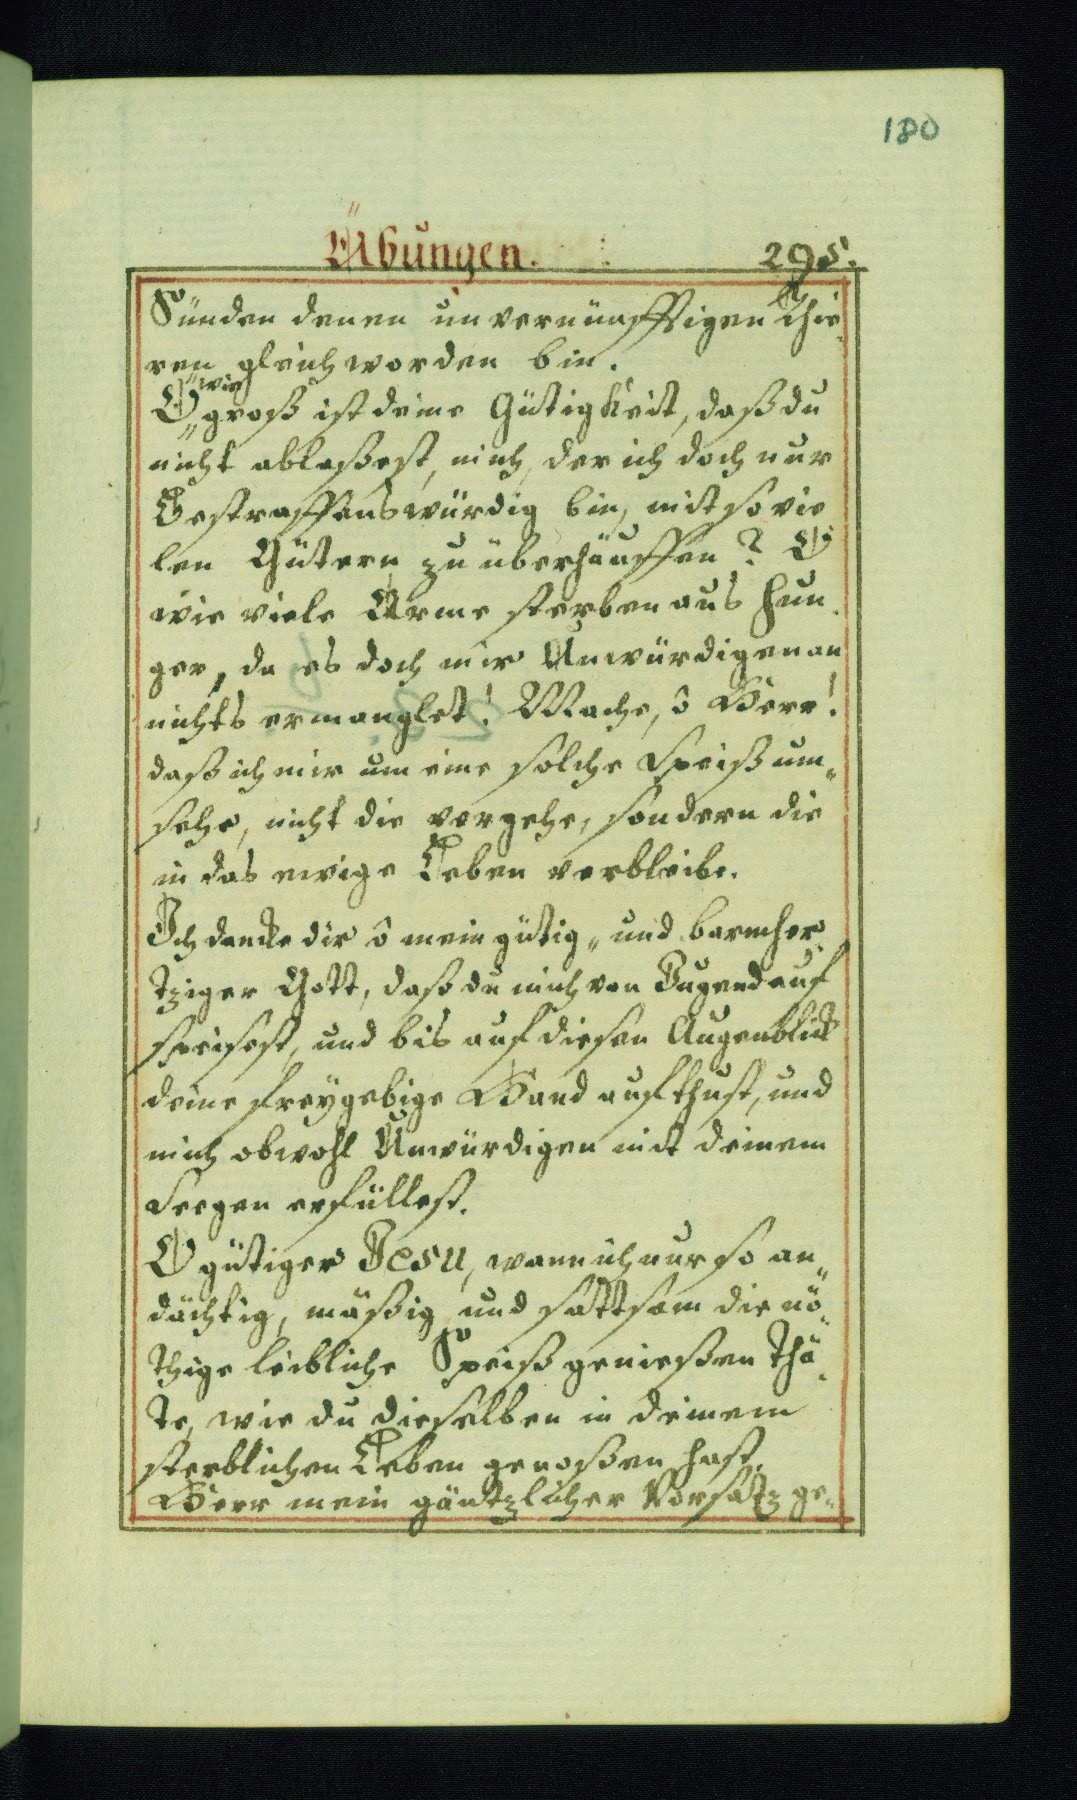 180
Übungen. 295.
Sünden denen unvernünfftigen Thie-
ren gleich worden bin.
O wie groß ist deine Gütigkeit, daß du
nicht ablaßest, mich, der ich doch nur
Bestraffenswürdig bin, mit so vie
len Gütern zu überhäuffen? O
wie viele Arme sterben aus Hun-
ger, da es doch mir Unwürdigen an
nichts ermanglet! Mache, ô Herr!
daß ich mir um eine solche Speiß um-
sehe, nicht die vergehe, sondern die
in das ewige Leben verbleibe.
Ich dancke dir ô mein gütig- und barmher-
tziger Gott, daß du mich von Jugend auf
speisest, und bis auf diesen Augenblick
deine freygebige Hand aufthust, und
mich obwohl Unwürdigen mit deinem
Seegen erfüllest.
O gütiger Jesu, wann ich nur so an-
dächtig, mäßig und sattsam die nö-
thige leibliche Speiß genießen thä-
te, wie du dieselben in deinem
sterblichen Leben genoßen hast.
Herr mein gäntzlicher Vorsatz ge-